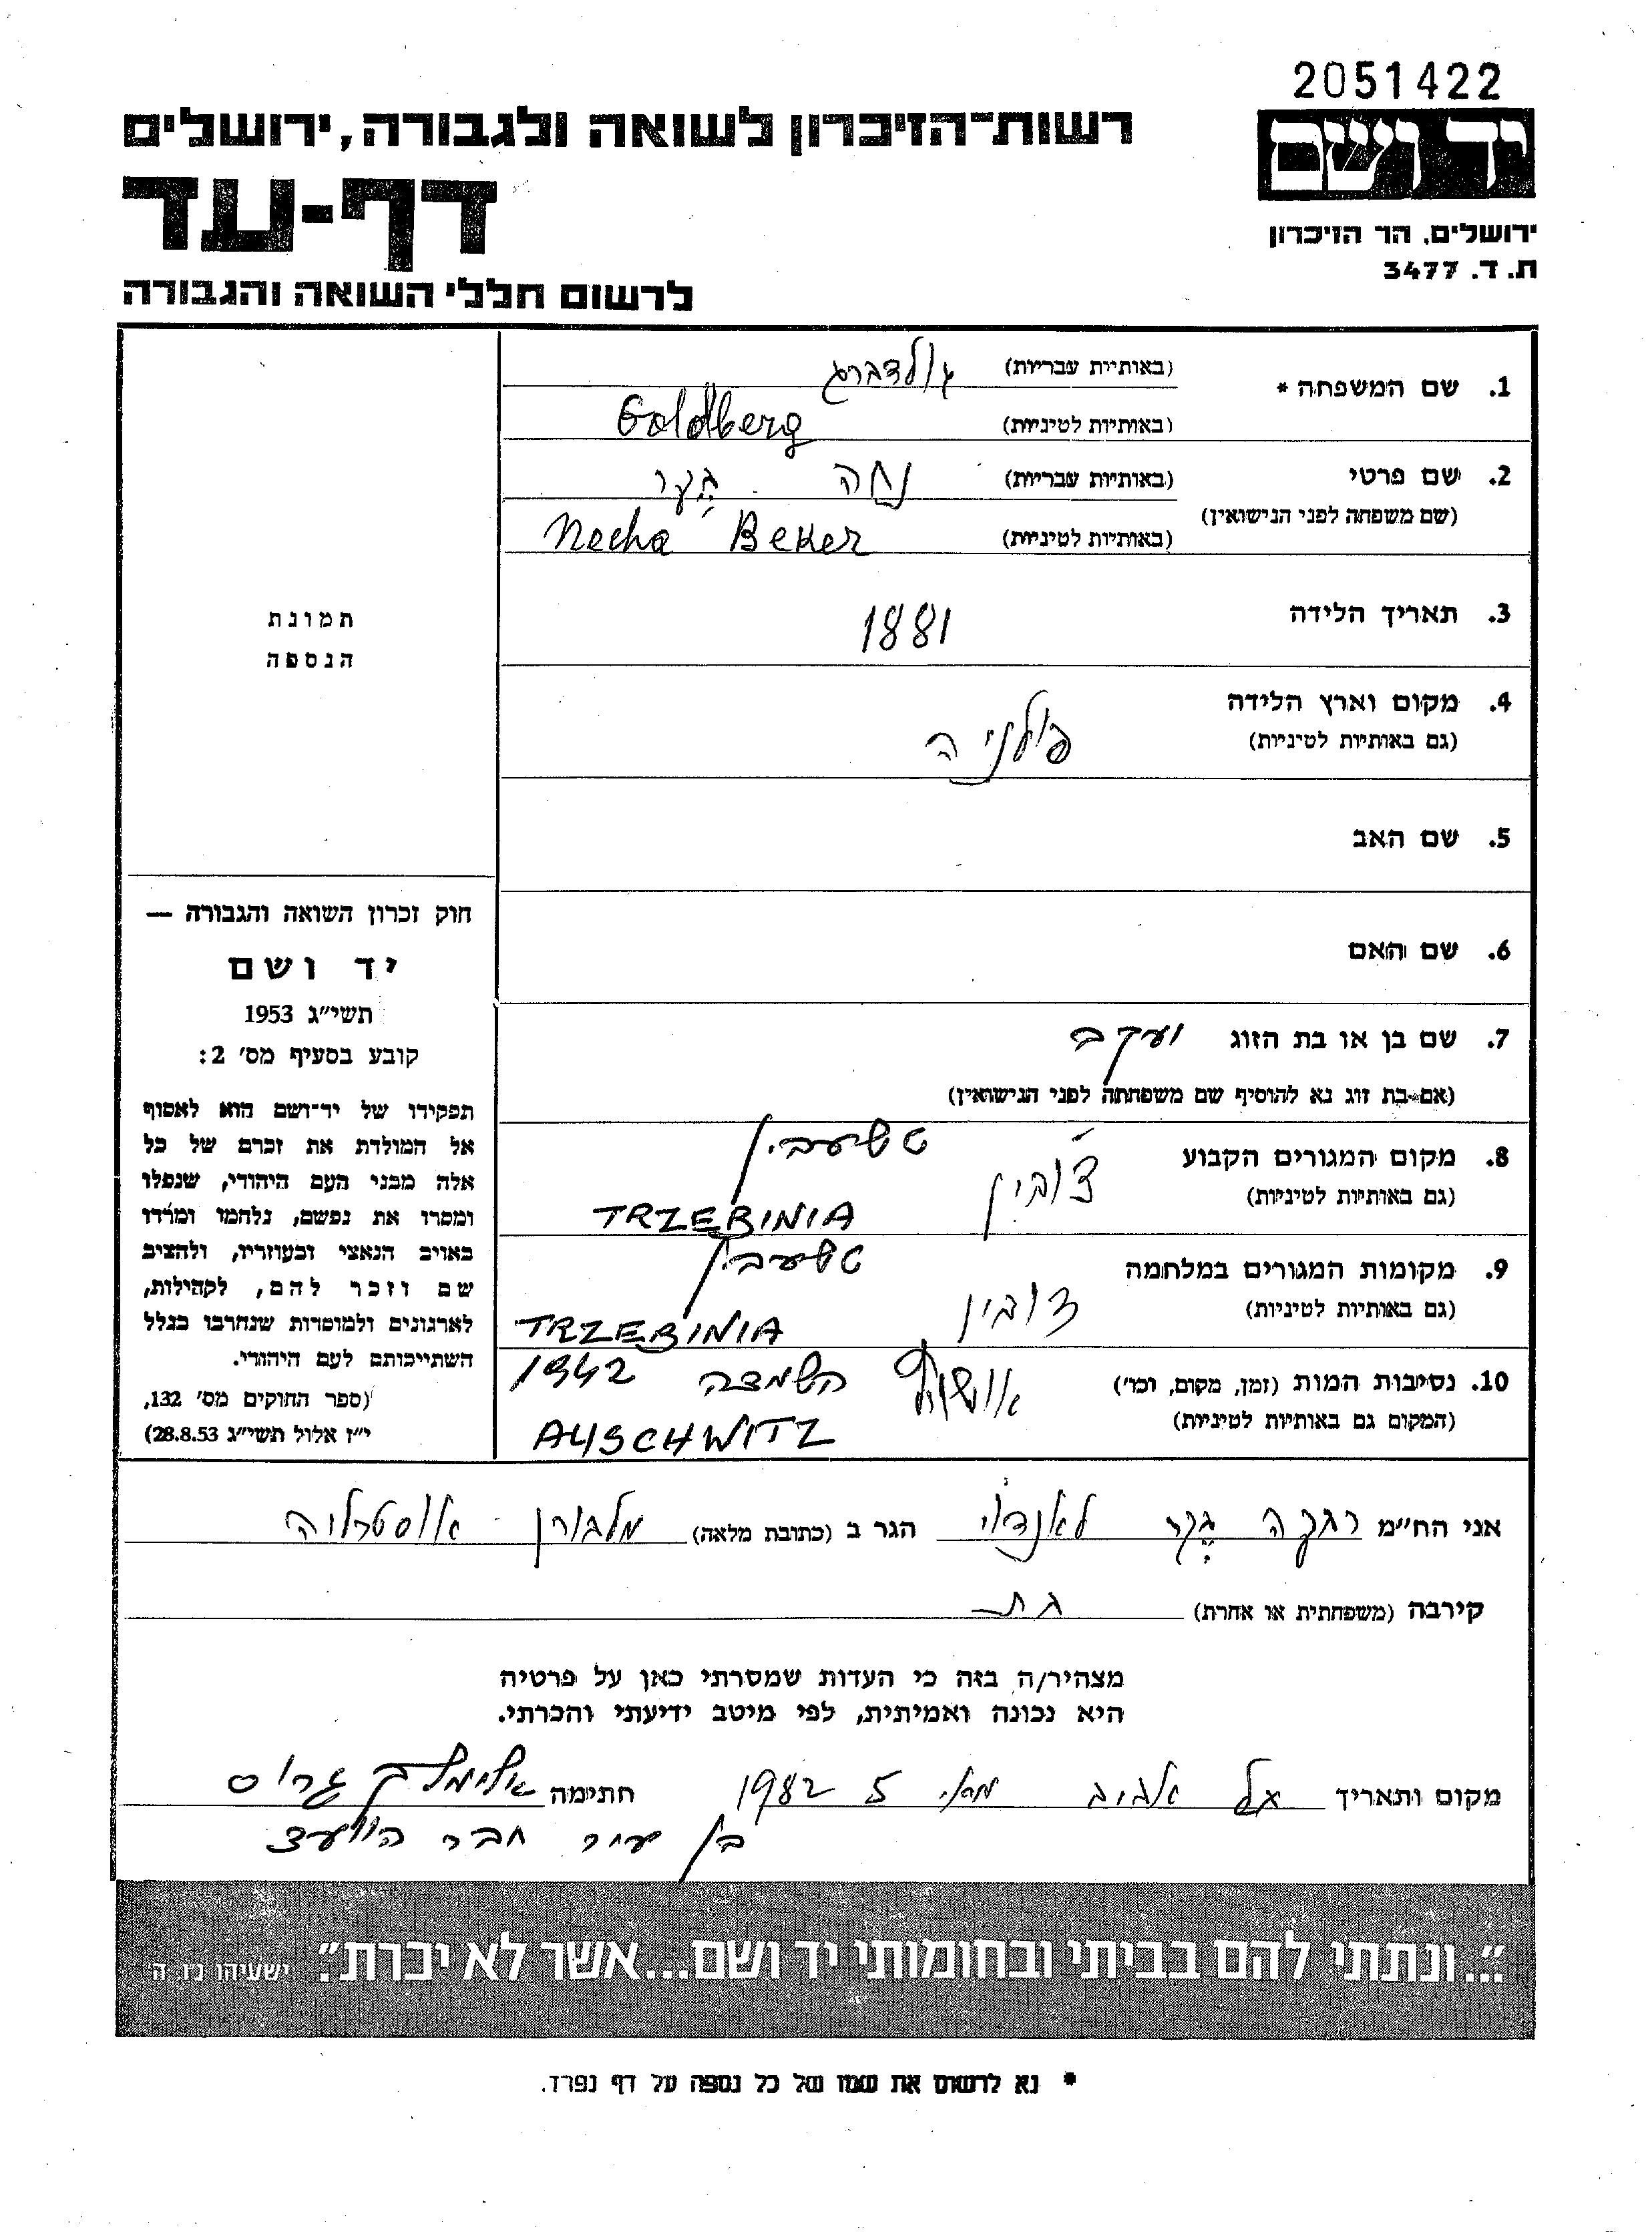 2051422
יד ושם
ירושלים, הר הזיכרון
ת.ד. 3477
רשות־הזיכרון לשואה ולגבורה, ירושלים
דף-עד
לרשום חללי השואה והגבורה
1. שם המשפחה * (באותיות עבריות) גולדברג
(באותיות לטיניות) Goldberg
2. שם פרטי (באותיות עבריות) נחה בקר
(שם משפחה לפני הנישואין) (באותיות לטיניות) Necha Beker
3. תאריך הלידה 1881
4. מקום וארץ הלידה פולניה
(גם באותיות לטיניות)
5. שם האב
6. שם האם
7. שם בן או בת הזוג יעקב
(אם בת זוג נא להוסיף שם משפחתה לפני הנישואין)
8. מקום המגורים הקבוע
(גם באותיות לטיניות) TRZEBINIA
9. מקומות המגורים במלחמה
(גם באותיות לטיניות) TRZEBINIA
10. נסיבות המות (זמן, מקום, וכו') אושויץ השמדה 1942
(המקום גם באותיות לטיניות) AUSCHWITZ
תמונת
הנספה
חוק זכרון השואה והגבורה —
יד ושם
תשי״ג 1953
קובע בסעיף מס' 2:
תפקידו של יד־ושם הוא לאסוף
אל המולדת את זכרם של כל
אלה מבני העם היהודי, שנפלו
ומסרו את נפשם, נלחמו ומרדו
באויב הנאצי ובעוזריו, ולהציב
שם וזכר להם, לקהילות,
לארגונים ולמוסדות שנחרבו בגלל
השתייכותם לעם היהודי.
(ספר החוקים מס' 132,
י״ז אלול תשי״ג 28.8.53)
אני הח״מ רבקה בקר לאנדוי הגר ב (כתובת מלאה) מלבורן - אוסטרליה
קירבה (משפחתית או אחרת) בת
מצהיר/ה בזה כי העדות שמסרתי כאן על פרטיה
היא נכונה ואמיתית, לפי מיטב ידיעתי והכרתי.
מקום ותאריך תל אביב מאי 5 1982 חתימה אלימלך גרוס
בן עיר חבר היועצ
״...ונתתי להם בביתי ובחומותי יד ושם...אשר לא יכרת״. ישעיהו נ״ו, ה'
* נא לרשום את שמו של כל נספה על דף נפרד.